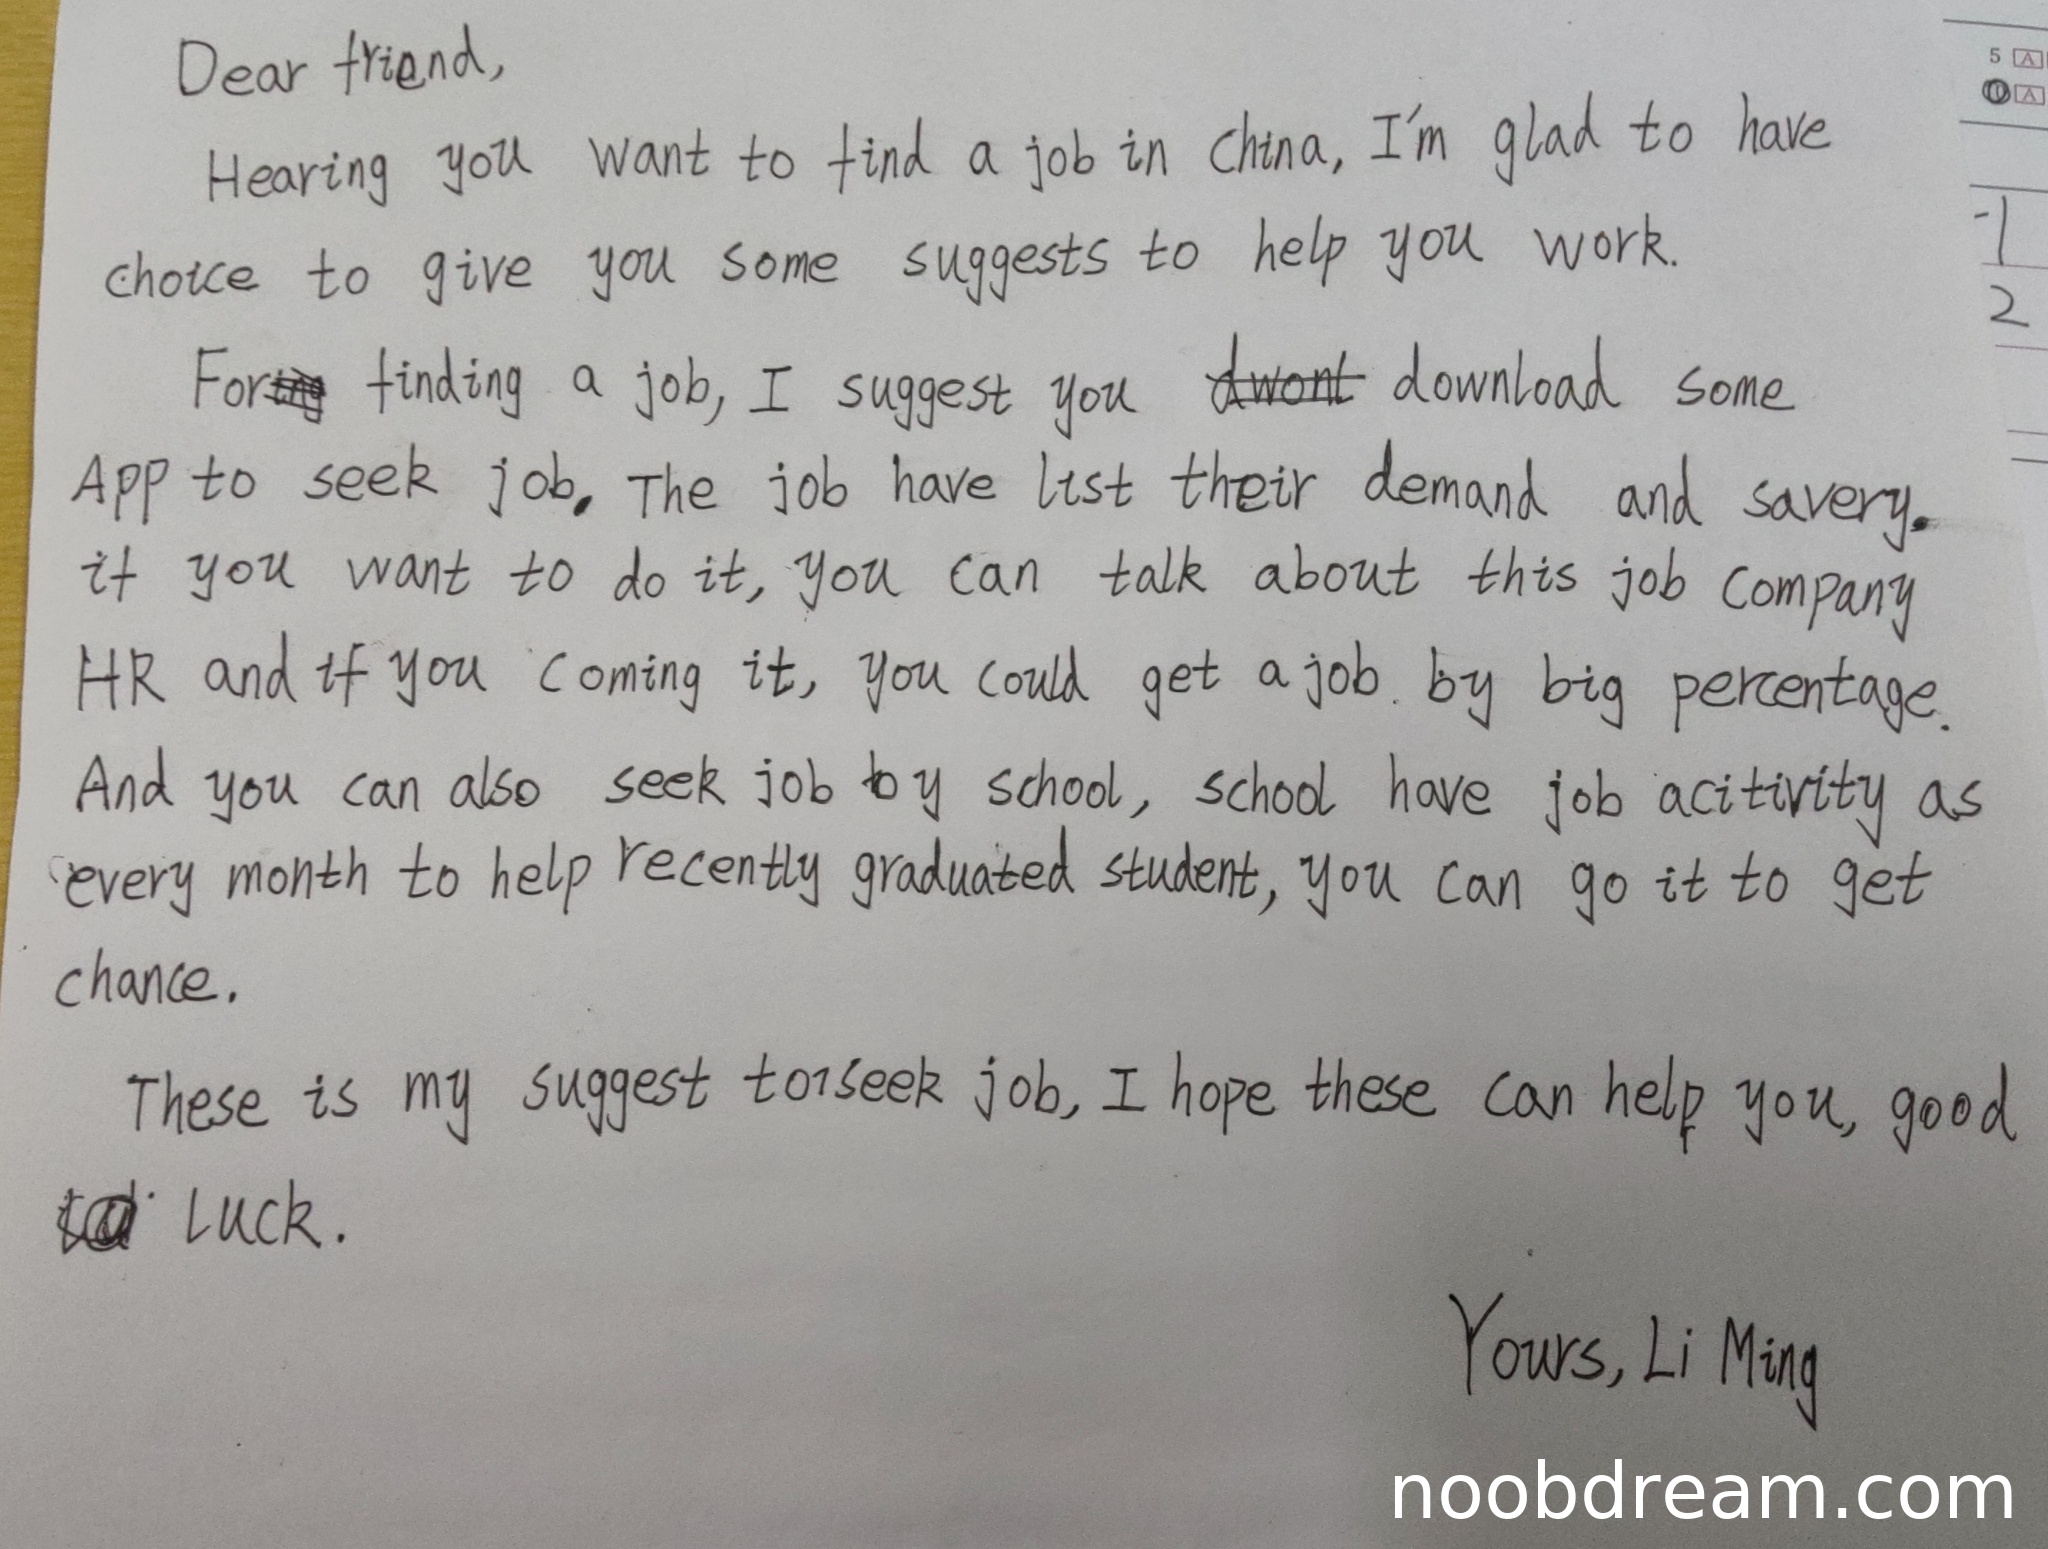 Dear friend,
Hearing you want to find a job in China, I'm glad to have
choice to give you some suggests to help you work.
For finding a job, I suggest you dwont download some
App to seek job. The job have list their demand and savery.
if you want to do it, you can talk about this job company
HR and if you coming it, you could get a job by big percentage.
And you can also seek job by school, school have job acitivity as
every month to help recently graduated student, you can go it to get
chance.
These is my suggest to seek job, I hope these can help you, good
luck.
Yours, Li Ming
5 A
10 A
1
2
noobdream.com